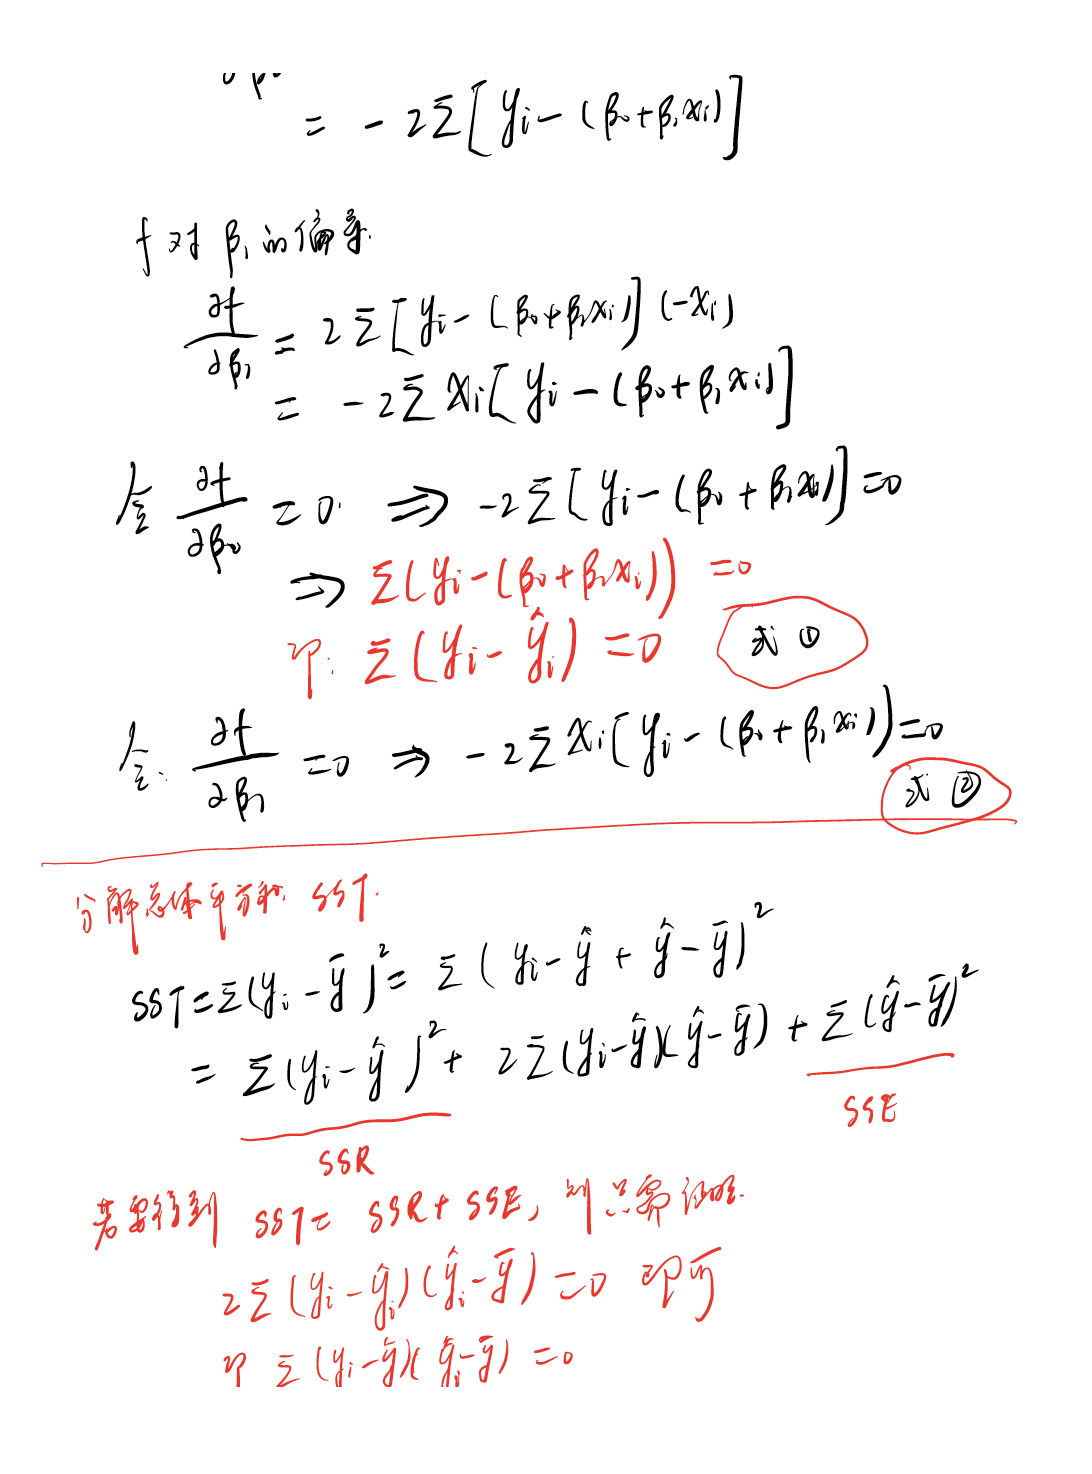 = -2Σ[yi-(β₀+β₁xi)]
f对β₁的偏导.
∂f/∂β₁ = 2Σ[yi-(β₀+β₁xi)](-xi)
= -2Σxi[yi-(β₀+β₁xi)]
令 ∂f/∂β₀ = 0. ⇒ -2Σ[yi-(β₀+β₁xi)]=0
⇒ Σ(yi-(β₀+β₁xi)) =0
即: Σ(yi-ŷi)=0 式①
令. ∂f/∂β₁ =0 ⇒ -2Σxi(yi-(β₀+β₁xi))=0
式②
分解总体平方和 SST.
SST=Σ(yi-ȳ)²= Σ(yi-ŷ+ŷ-ȳ)²
= Σ(yi-ŷ)²+ 2Σ(yi-ŷ)(ŷ-ȳ)+Σ(ŷ-ȳ)²
SSR SSE
若要得到 SST= SSR+SSE, 则只需证明.
2Σ(yi-ŷi)(ŷi-ȳ)=0 即可
即 Σ(yi-ŷ)(ŷi-ȳ)=0